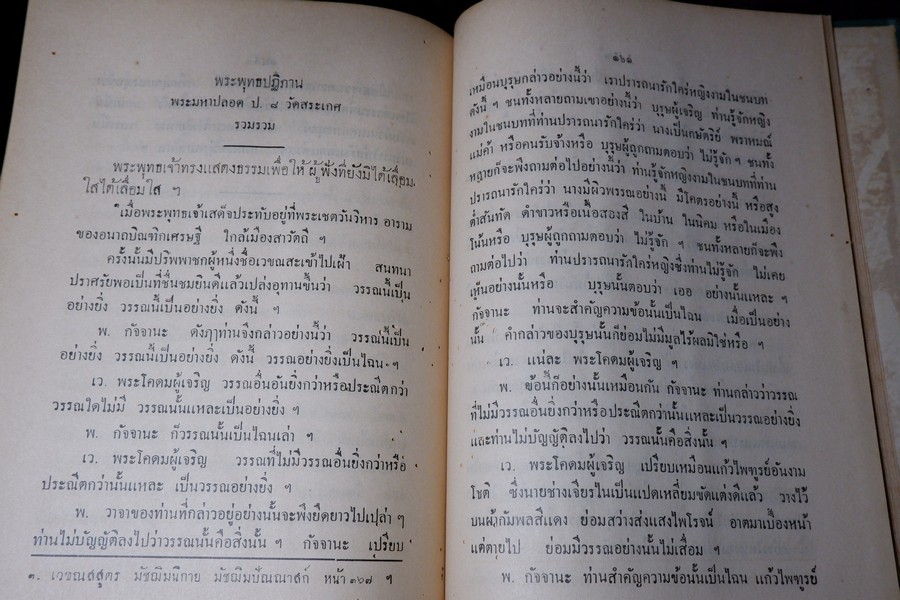 พระพุทธปฏิภาน
พระมหาปลอด ป. ๘ วัดสระเกศ
รวมรวม
พระพุทธเจ้าทรงแสดงธรรมเพื่อให้ผู้ฟังที่ยังมิได้เลื่อม
ใสได้เลื่อมใส ฯ
เมื่อพระพุทธเจ้าเสด็จประทับอยู่ที่พระเชตวันวิหาร อาราม
ของอนาถบิณฑิกเศรษฐี ใกล้เมืองสาวัตถี ฯ
ครั้งนั้นมีปริพพาชกผู้หนึ่งชื่อเวขณสะเข้าไปเฝ้า สนทนา
ปราศรัยพอเป็นที่ชื่นชมยินดีแล้วเปล่งอุทานขึ้นว่า วรรณนี้เป็น
อย่างยิ่ง วรรณนี้เป็นอย่างยิ่ง ดังนี้ ฯ
พ. กัจจานะ ดังฤๅท่านจึงกล่าวอย่างนี้ว่า วรรณนี้เป็น
อย่างยิ่ง วรรณนี้เป็นอย่างยิ่ง ดังนี้ วรรณอย่างยิ่งเป็นไฉน ฯ
เว. พระโคดมผู้เจริญ วรรณอื่นอันยิ่งกว่าหรือประณีตกว่า
วรรณใดไม่มี วรรณนั้นแหละเป็นอย่างยิ่ง ฯ
พ. กัจจานะ ก็วรรณนั้นเป็นไฉนเล่า ฯ
เว. พระโคดมผู้เจริญ วรรณที่ไม่มีวรรณอื่นยิ่งกว่าหรือ
ประณีตกว่านั้นแหละ เป็นวรรณอย่างยิ่ง ฯ
พ. วาจาของท่านที่กล่าวอยู่อย่างนั้นจะพึงยืดยาวไปเปล่า ๆ
ท่านไม่บัญญัติลงไปว่าวรรณนั้นคือสิ่งนั้น ฯ กัจจานะ เปรียบ
๑. เวขณสสุตร มัชฌิมนิกาย มัชฌิมปัณณาสก์ หน้า ๑๖๗ ฯ
๑๖๑
เหมือนบุรุษกล่าวอย่างนี้ว่า เราปรารถนารักใคร่หญิงงามในชนบท
ดังนี้ ฯ ชนทั้งหลายถามเขาอย่างนี้ว่า บุรุษผู้เจริญ ท่านรู้จักหญิง
งามในชนบทที่ท่านปรารถนารักใคร่ว่า นางเป็นกษัตริย์ พราหมณ์
แม่ค้า หรือคนรับจ้างหรือ บุรุษผู้ถูกถามตอบว่า ไม่รู้จัก ฯ ชนทั้ง
หลายก็จะพึงถามต่อไปอย่างนี้ว่า ท่านรู้จักหญิงงามในชนบทที่ท่าน
ปรารถนารักใคร่ว่า นางมีผิวพรรณอย่างนี้ มีโคตรอย่างนี้ หรือสูง
ต่ำสันทัด ดำขาวหรือเนื้อสองสี ในบ้าน ในนิคม หรือในเมือง
โน้นหรือ บุรุษผู้ถูกถามตอบว่า ไม่รู้จัก ฯ ชนทั้งหลายก็จะพึง
ถามต่อไปว่า ท่านปรารถนารักใคร่หญิงซึ่งท่านไม่รู้จัก ไม่เคย
เห็นอย่างนั้นหรือ บุรุษนั้นตอบว่า เออ อย่างนั้นแหละ ฯ
กัจจานะ ท่านจะสำคัญความข้อนั้นเป็นไฉน เมื่อเป็นอย่าง
นั้น คำกล่าวของบุรุษนั้นก็ย่อมไม่มีมูลไร้ผลมิใช่หรือ ฯ
เว. แน่ละ พระโคดมผู้เจริญ ฯ
พ. ข้อนี้ก็อย่างนั้นเหมือนกัน กัจจานะ ท่านกล่าวว่าวรรณ
ที่ไม่มีวรรณอื่นยิ่งกว่าหรือประณีตกว่านั้นแหละเป็นวรรณอย่างยิ่ง
และท่านไม่บัญญัติลงไปว่า วรรณนั้นคือสิ่งนั้น ฯ
เว. พระโคดมผู้เจริญ เปรียบเหมือนแก้วไพฑูรย์อันงาม
โชติ ซึ่งนายช่างเจียรไนเป็นแปดเหลี่ยมขัดแต่งดีแล้ว วางไว้
บนผ้ากัมพลสีแดง ย่อมสว่างส่งแสงไพโรจน์ อาตมาเบื้องหน้า
แต่ตายไป ย่อมมีวรรณอย่างนั้นไม่เสื่อม ฯ
พ. กัจจานะ ท่านสำคัญความข้อนั้นเป็นไฉน แก้วไพฑูรย์